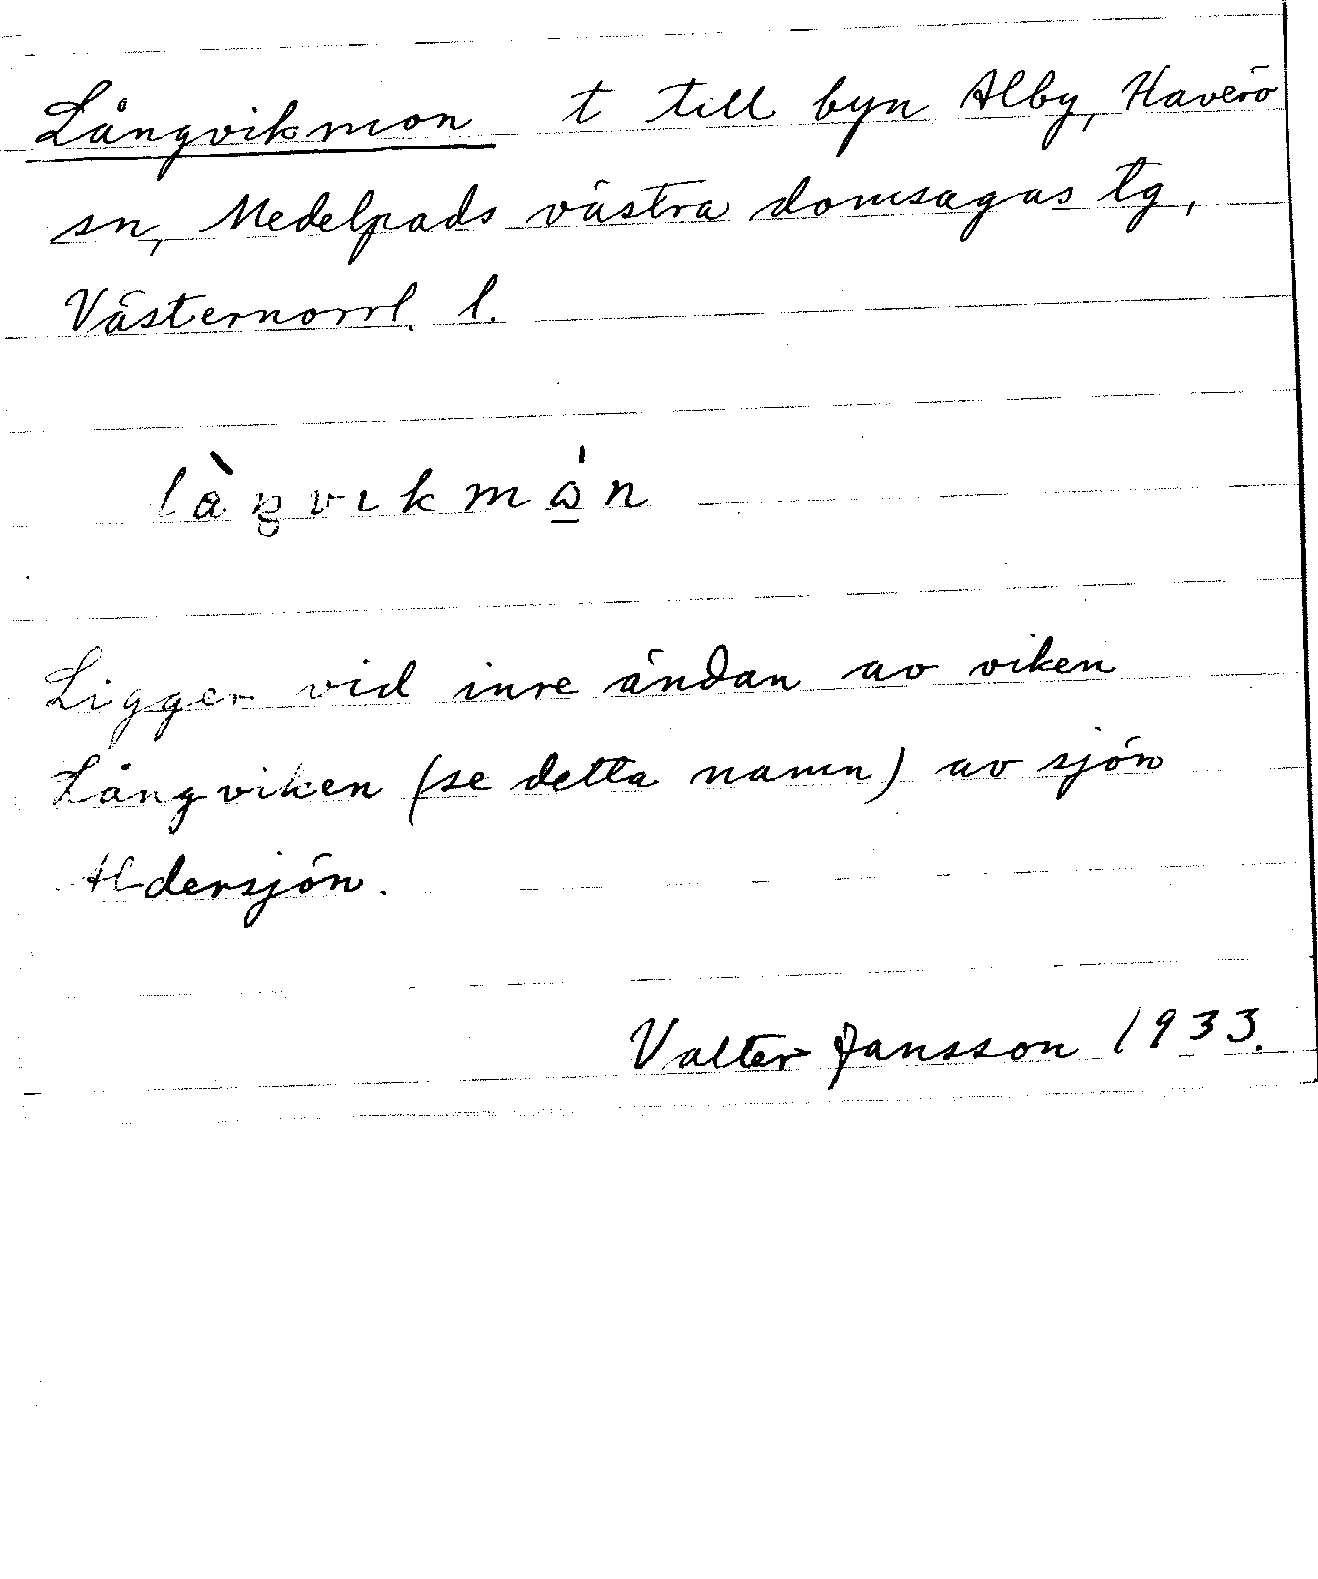 Långvikmon t till byn Alby, Haverö
sn, Medelpads västra domsagas tg,
Västernorrl. l.
làŋvıkmɷ́n
Ligger vid inre ändan av viken
Långviken (se detta namn) av sjön
Aldersjön.
Valter Jansson 1933.